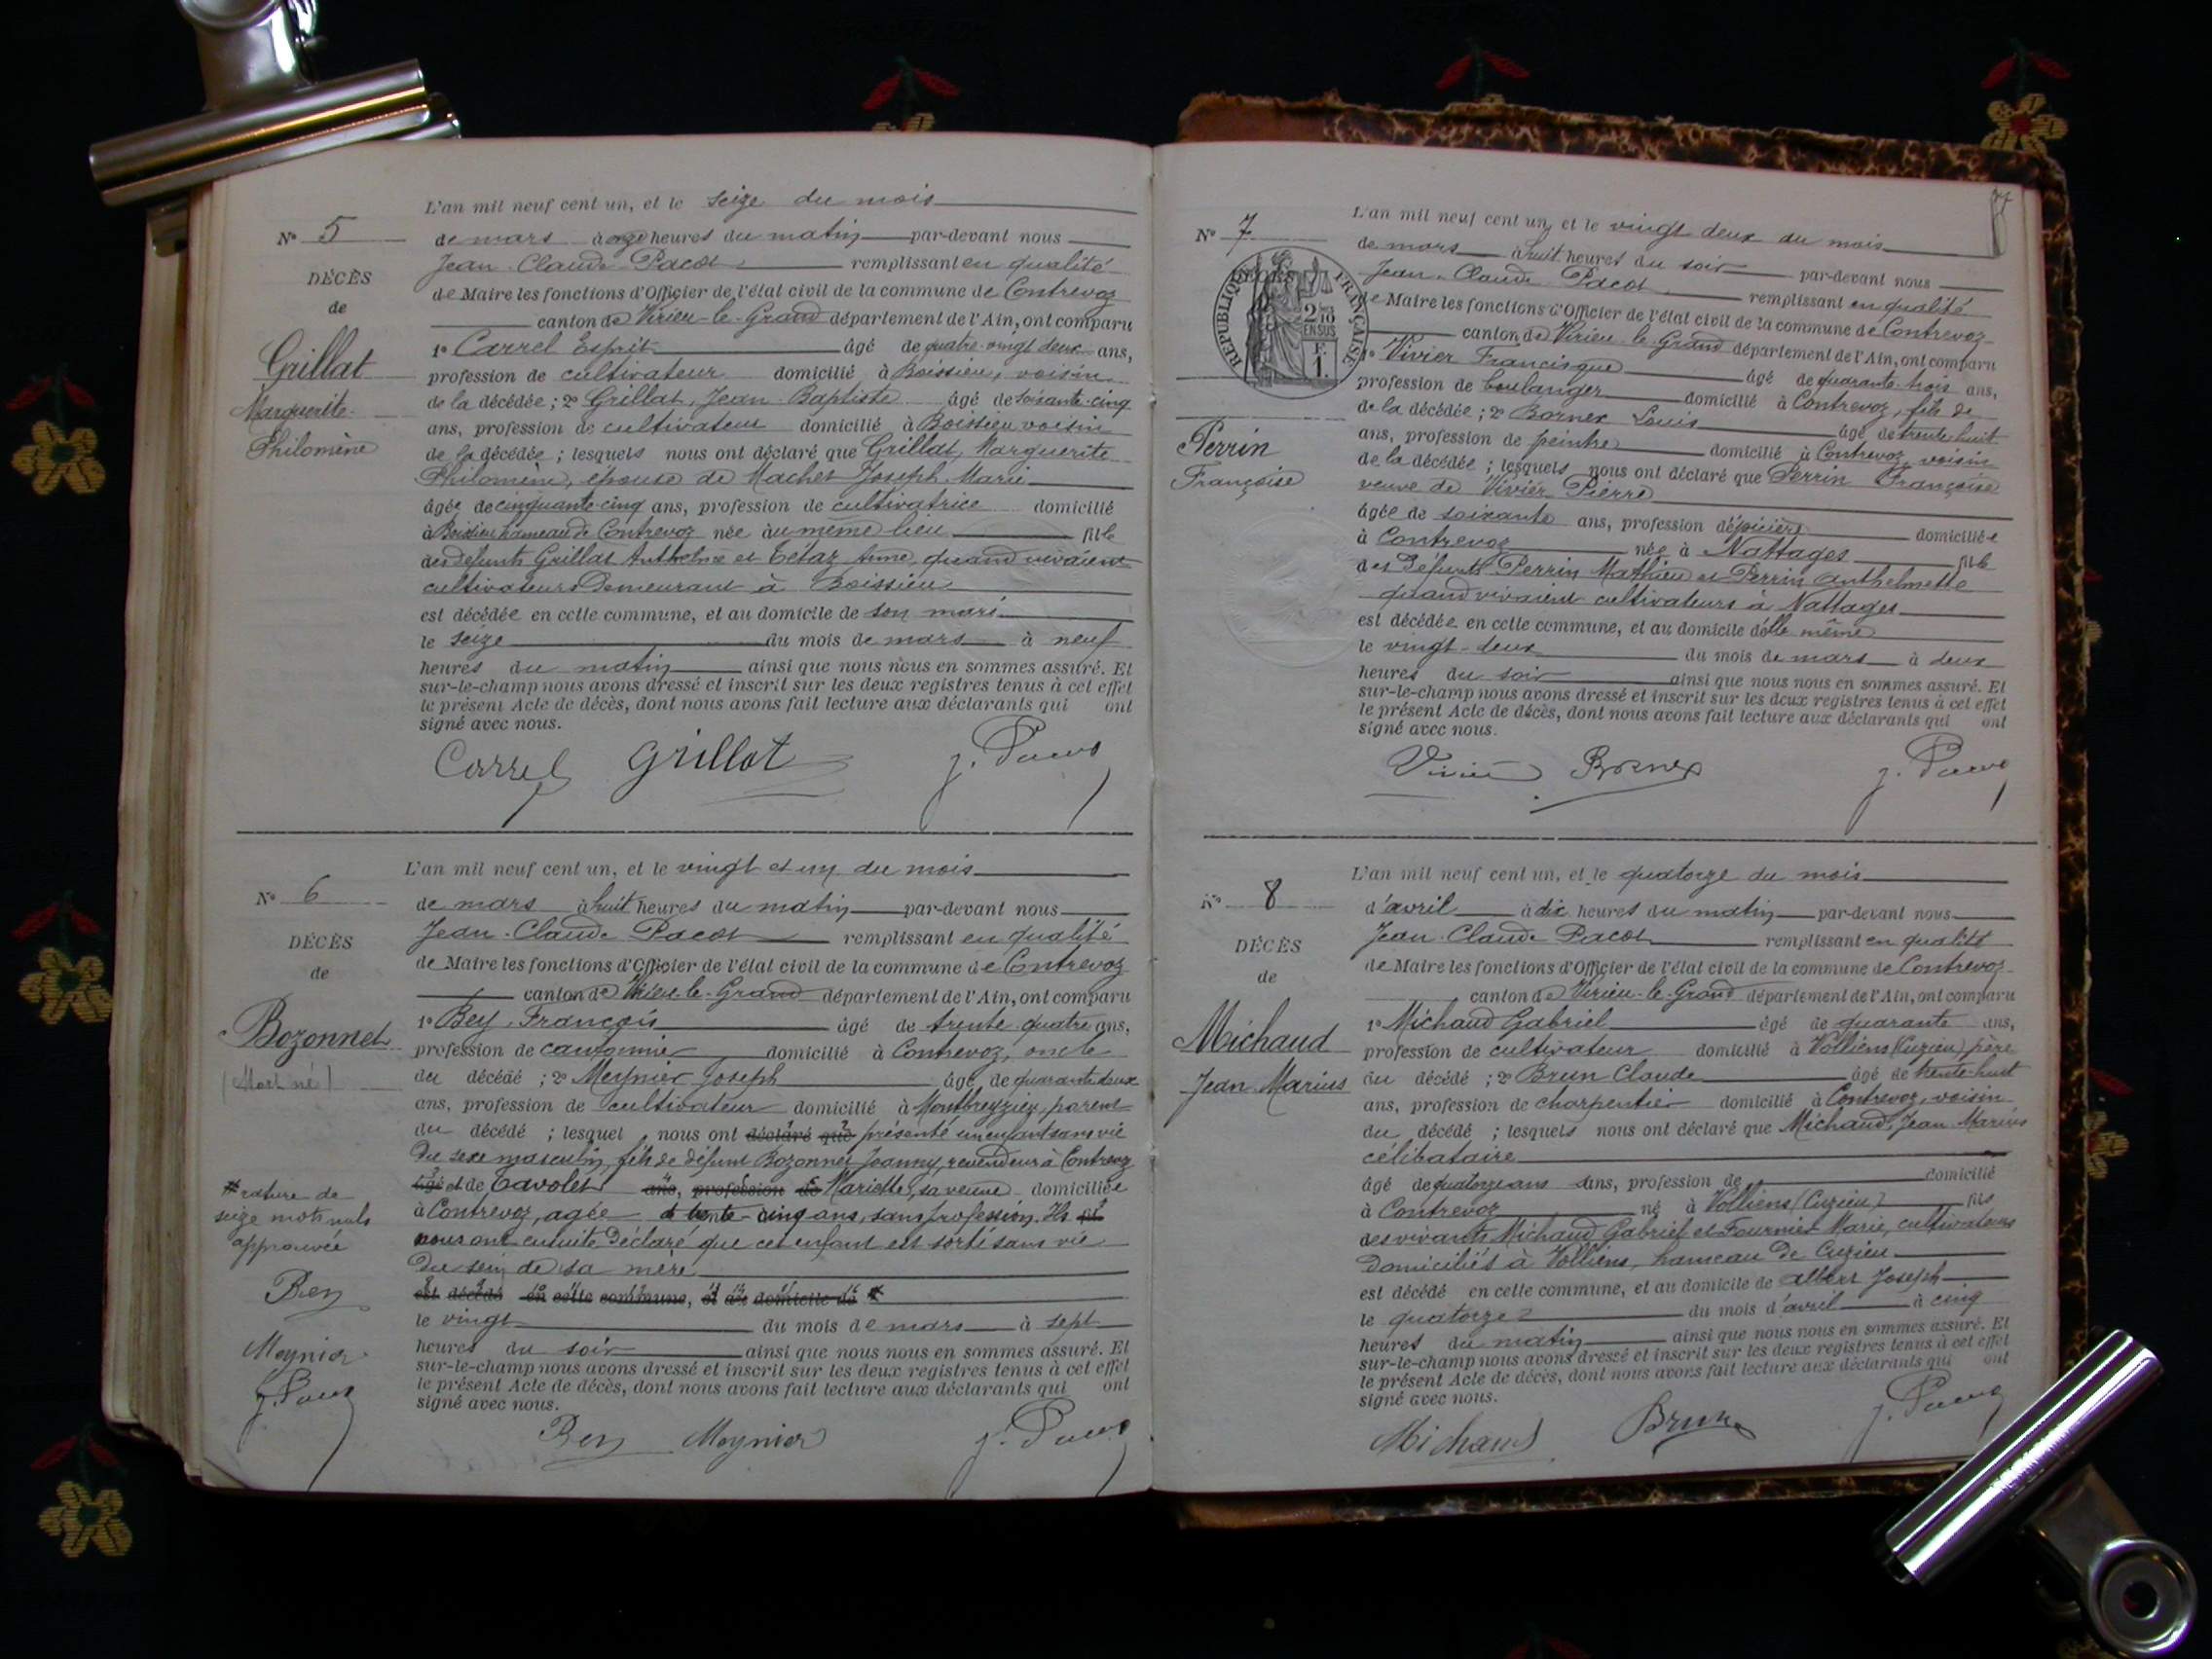 L'an mil neuf cent un, et le seize du mois
N° 5
de mars à onze heures du matin par-devant nous
Jean-Claude Pacot remplissant en qualité
DÉCÈS
de Maire les fonctions d'Officier de l'état civil de la commune de Contrevoz
de
canton de Virieu-le-Grand département de l'Ain, ont comparu
1° Carrel Esprit âgé de quatre-vingt deux ans,
Grillat
profession de cultivateur domicilié à Boissieu, voisin
Marguerite
de la décédée ; 2° Grillat, Jean-Baptiste âgé de soixante-cinq
ans, profession de cultivateur domicilié à Boissieu voisin
Philomène
de la décédée ; lesquels nous ont déclaré que Grillat, Marguerite
Philomène, épouse de Machet Joseph-Marie
âgée de cinquante-cinq ans, profession de cultivatrice domicilié
à Boissieu hameau de Contrevoz née au même lieu fille
des défunts Grillat Anthelme et Tétaz quand vivaient
cultivateurs demeurant à Boissieu
est décédée en cette commune, et au domicile de son mari
le seize du mois de mars à neuf
heures du matin ainsi que nous nous en sommes assuré. Et
sur-le-champ nous avons dressé et inscrit sur les deux registres tenus à cet effet
le présent Acte de décès, dont nous avons fait lecture aux déclarants qui ont
signé avec nous.
Carrel Grillat J. Pacot
L'an mil neuf cent un, et le vingt et un du mois
N° 6
de mars à huit heures du matin par-devant nous
Jean-Claude Pacot remplissant en qualité
DÉCÈS
de Maire les fonctions d'Officier de l'état civil de la commune de Contrevoz
de
canton de Virieu-le-Grand département de l'Ain, ont comparu
1° Bey François âgé de trente-quatre ans,
Bozonnet
profession de cantonnier domicilié à Contrevoz, oncle
(Mort né)
du décédé ; 2° Meynier Joseph âgé de quarante deux
ans, profession de cultivateur domicilié à Montbreyzieu, parent
du décédé ; lesquel nous ont déclaré que présenté un enfant sans vie
du sexe masculin, fils de défunt Bozonnet Joanny, revendeur à Contrevoz
âgé et de Tavolet ans, profession de Mariette, sa veuve, domiciliée
à Contrevoz, agée de trente-cinq ans, sans profession. Ils fil
nous ont ensuite déclaré que cet enfant est sorti sans vie
du sein de sa mère
est décédé en cette commune, et au domicile de *
le vingt du mois de mars à sept
heures du soir ainsi que nous nous en sommes assuré. Et
sur-le-champ nous avons dressé et inscrit sur les deux registres tenus à cet effet
le présent Acte de décès, dont nous avons fait lecture aux déclarants qui ont
signé avec nous.
Bey Meynier J. Pacot
* rature de
seize mots nuls
approuvée
Bey
Meynier
J. Pacot
L'an mil neuf cent un, et le vingt deux du mois
N° 7
de mars à huit heures du soir par-devant nous
Jean-Claude Pacot remplissant en qualité
RÉPUBLIQUE FRANÇAISE
2/10 EN SUS
F. 1.
de Maire les fonctions d'Officier de l'état civil de la commune de Contrevoz
canton de Virieu-le-Grand département de l'Ain, ont comparu
1° Vivier Francisque âgé de quarante-trois ans,
profession de boulanger domicilié à Contrevoz, fils de
de la décédée ; 2° Bornex Louis âgé de trente huit
Perrin
ans, profession de peintre domicilié à Contrevoz, voisin
Françoise
de la décédée ; lesquels nous ont déclaré que Perrin Françoise
veuve de Vivier Pierre
âgée de soixante ans, profession d'épicière domiciliée
à Contrevoz née à Nattages fille
des défunts Perrin Mathieu et Perrin Anthelmette
quand vivaient cultivateurs à Nattages
est décédée en cette commune, et au domicile d'elle même
le vingt-deux du mois de mars à deux
heures du soir ainsi que nous nous en sommes assuré. Et
sur-le-champ nous avons dressé et inscrit sur les deux registres tenus à cet effet
le présent Acte de décès, dont nous avons fait lecture aux déclarants qui ont
signé avec nous.
Vivier Bornex J. Pacot
L'an mil neuf cent un, et le quatorze du mois
N° 8
d'avril à dix heures du matin par-devant nous
Jean-Claude Pacot remplissant en qualité
DÉCÈS
de Maire les fonctions d'Officier de l'état civil de la commune de Contrevoz
de
canton de Virieu-le-Grand département de l'Ain, ont comparu
1° Michaud Gabriel âgé de quarante ans,
Michaud
profession de cultivateur domicilié à Volliens (Cuzieu) père
Jean-Marius
du décédé ; 2° Brun Claude âgé de trente-huit
ans, profession de charpentier domicilié à Contrevoz, voisin
du décédé ; lesquels nous ont déclaré que Michaud, Jean-Marius
célibataire
âgé de quatorze ans ans, profession de domicilié
à Contrevoz né à Volliens (Cuzieu) fils
des vivants Michaud Gabriel et Fournier Marie, cultivateurs
domiciliés à Volliens, hameau de Cuzieu
est décédé en cette commune, et au domicile de Albert Joseph
le quatorze du mois d'avril à cinq
heures du matin ainsi que nous nous en sommes assuré. Et
sur-le-champ nous avons dressé et inscrit sur les deux registres tenus à cet effet
le présent Acte de décès, dont nous avons fait lecture aux déclarants qui ont
signé avec nous.
Michaud Brun J. Pacot